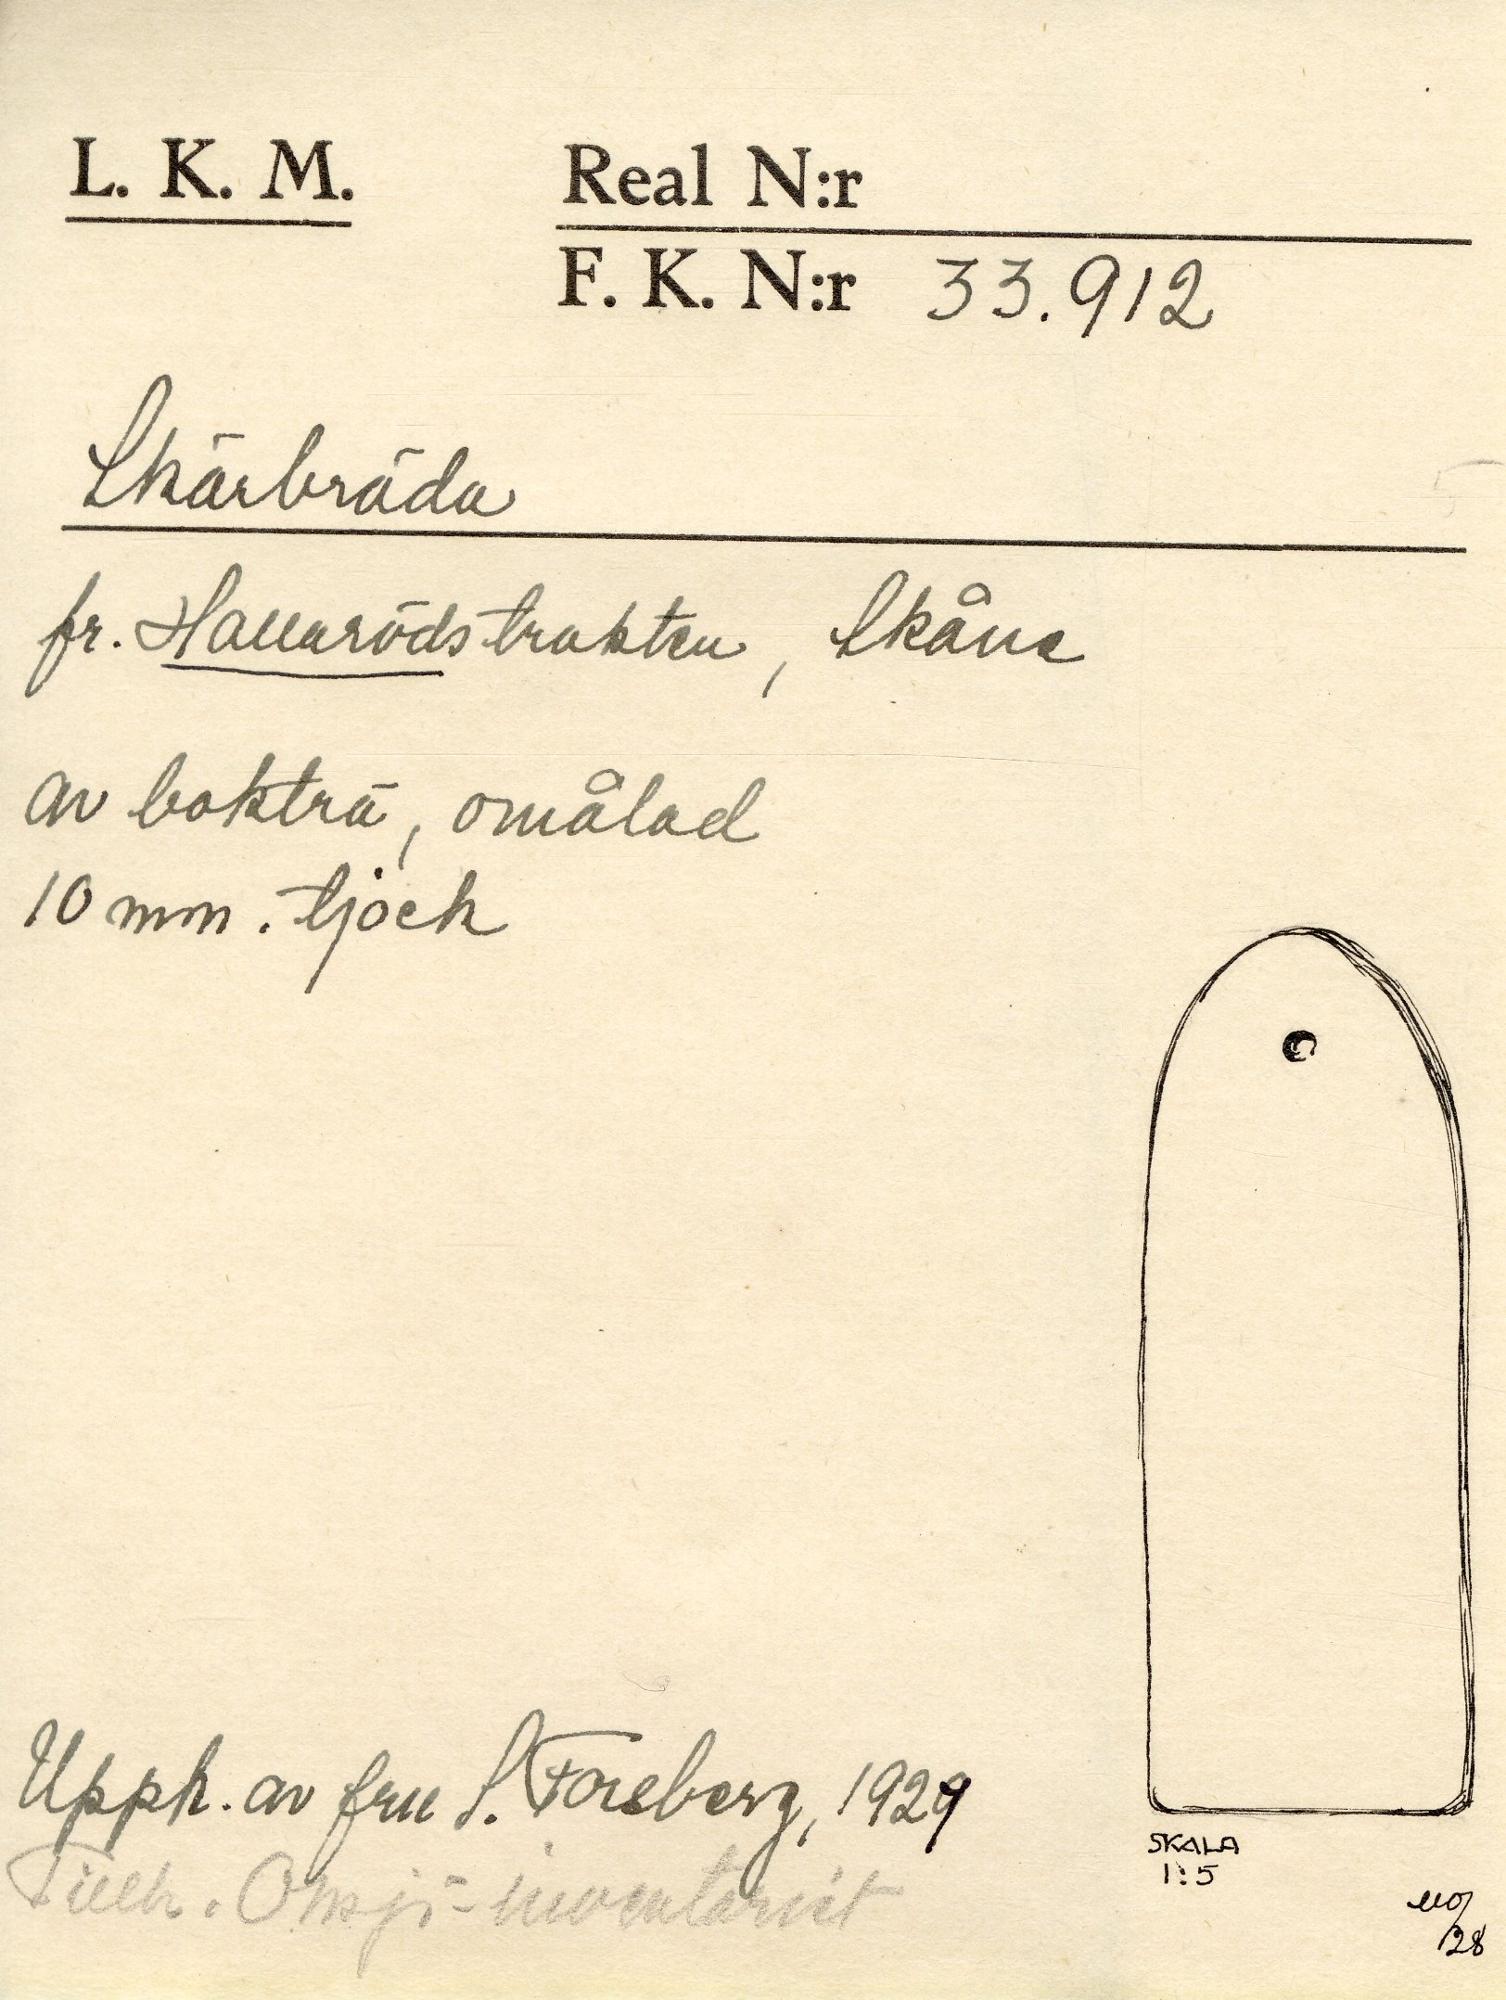 L. K. M.
Real N:r
F. K. N:r 33.912
Skärbräda
fr. Hallarödstrakten, Skåne
av bokträ, omålad
10 mm. tjock
Upph. av fru S. Forsberg, 1929
Tillh. Onsjö-inventariet
SKALA
1:5